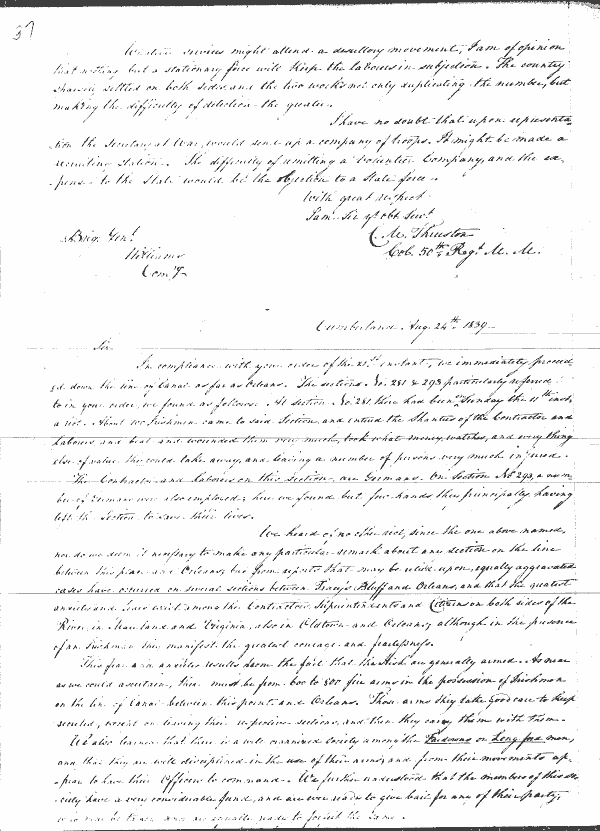 37
services might attend a desultory movement, I am of opinion
that nothing but a stationary force will keep the labours in subjection. The country
sparsely settled on both sides and the two works not only duplicating the number, but
making the difficulty of detection the greater.
I have no doubt that upon representa-
tion the Secretary at War, would send up a company of troops. It might be made a
recruiting station. The difficulty of a Volunteer Company, and the ex-
pense to the State would be the objection to a State force.
With great respect
I am Sir yr obt Servt
C. M. Thruston
Col. 50th Regt M. M.
Brig. Genl
Williams
Com'g
Cumberland Aug. 24th 1839
Sir
In compliance with your order of the 21st instant, we immediately proceed-
ed down the line of Canal as far as Orleans. The sections No. 281 & 293 particularly referred
to in your order, we found as follows. At Section No. 281 there had been Sunday the 11th
a riot. About Irishmen came to said Section, and entered the Shanties of the Contractor and
Labours and beat and wounded them very much, took what money, watches, and every thing
else of value they could take away, and leaving a number of persons very much injured.
The Contractor and Labours on this section are Germans. On Section No. 293, a num-
ber of Germans were also employed; here we found but few hands they principally having
left the Section to save their lives.
We heard of no other riot, since the one above named,
nor do we deem it necessary to make any particular remark about any section on the line
between this place and Orleans; but from reports that may be relied upon, equally aggravated
cases have occurred on several sections between Tracy's Bluff and Orleans, and that the greatest
anxiety and fears exist among the Contractors, Superintendents and Citizens on both sides of the
River in Maryland and Virginia, also in Oldtown and Orleans, although in the presence
of an Irishman they manifest the greatest courage and fearlessness.
This fear and anxiety results from the fact that the Irish are generally armed. As near
as we could ascertain, there must be from 600 to 800 fire arms in the possession of Irishmen
on the line of Canal between this point and Orleans. Those arms they take good care to keep
secreted, except on leaving their respective sections, and then they carry them with them.
We also learned that there is a well organized society among the Fardowns or Long ford men,
and that they are well disciplined in the use of their arms, and from their movements ap-
pear to have their Officers to command. We further understood that the members of this so-
ciety have a very considerable fund, and are ever ready to give bail for any of their party,
who may be taken and are equally ready to forfeit the same.